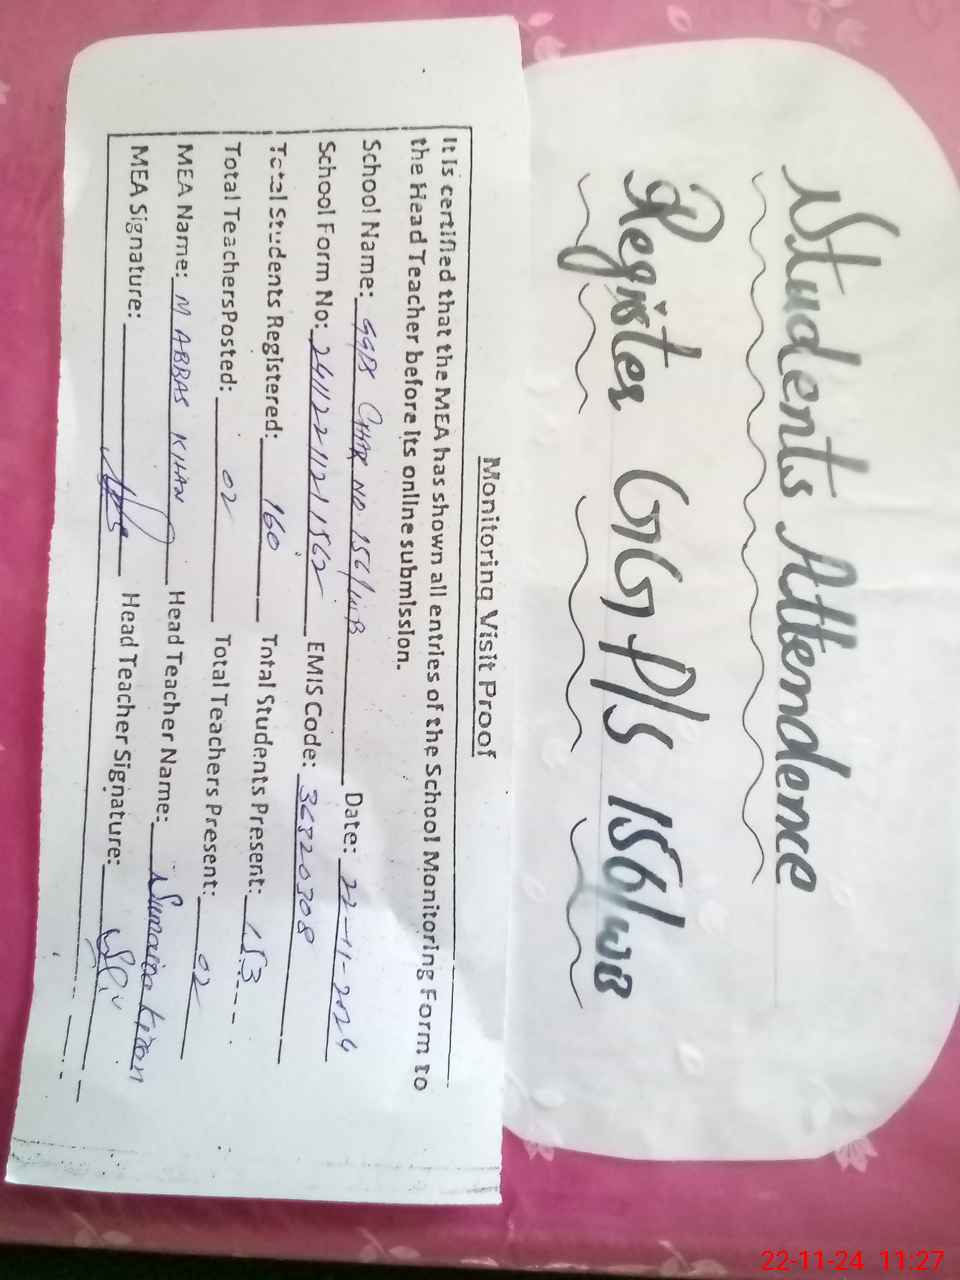 Students Attendence
Register GGP/S 156/WB
Monitoring Visit Proof
It is certified that the MEA has shown all entries of the School Monitoring Form to
the Head Teacher before its online submission.
School Name: GGPS CHAK NO. 156/WB Date: 22-11-2024
School Form No: EMIS Code: 36320308
Total Students Registered: 160 Total Students Present: 153
Total TeachersPosted: 02 Total Teachers Present: 02
MEA Name: M ABBAS KHAN Head Teacher Name: Sumaira Kiran
MEA Signature: Head Teacher Signature:
22-11-24 11:27